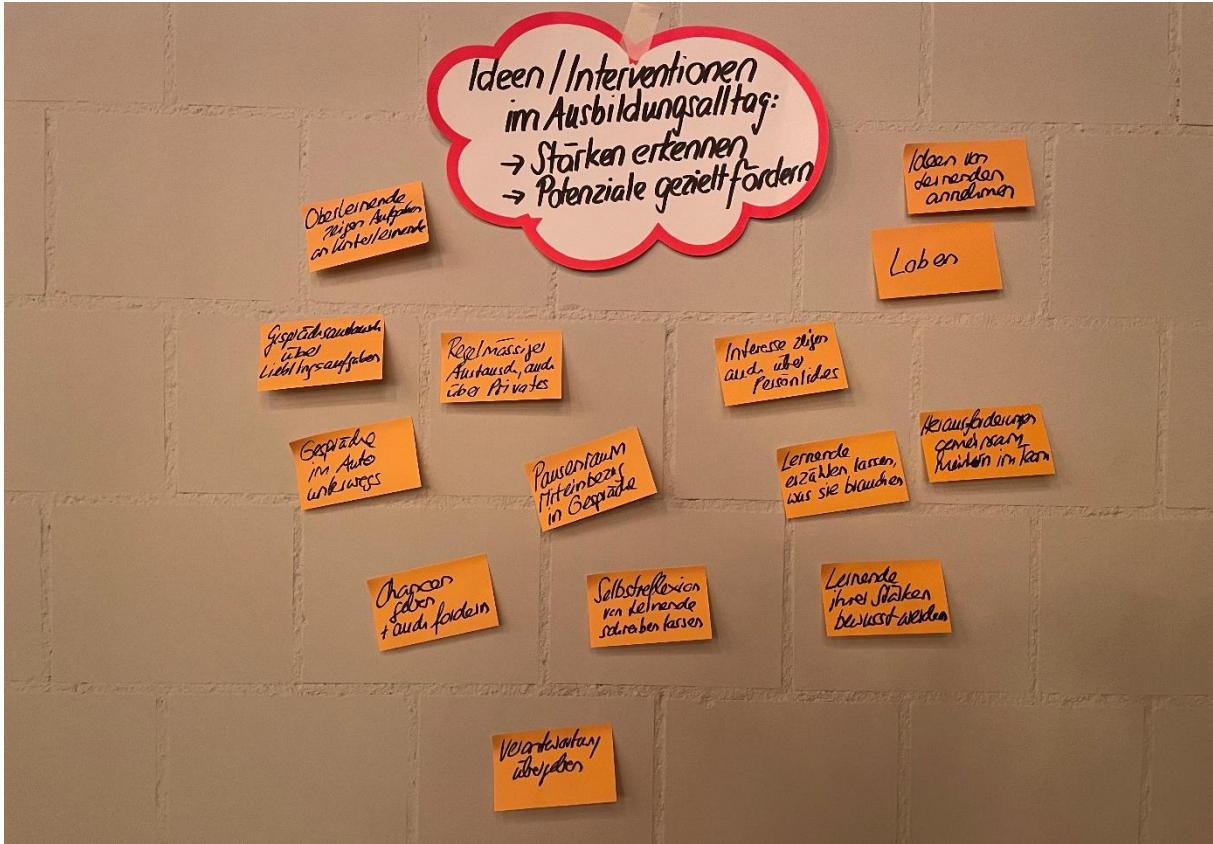 Ideen / Interventionen
im Ausbildungsalltag:
→ Stärken erkennen
→ Potenziale gezielt fördern
Oberlernende
zeigen Aufgaben
an Unterlernende
Ideen von
Lernenden
annehmen
Loben
Gesprächsaustausch
über
Lieblingsaufgaben
Regelmässiger
Austausch, auch
über Privates
Interesse zeigen
auch über
Persönliches
Gespräche
im Auto
unterwegs
Pausenraum
Miteinbezug
in Gespräche
Lernende
erzählen lassen,
was sie brauchen
Herausforderungen
gemeinsam
meistern im Team
Chancen
geben
+ auch fordern
Selbstreflexion
von Lernende
schreiben lassen
Lernende
ihrer Stärken
bewusst werden
Verantwortung
übergeben